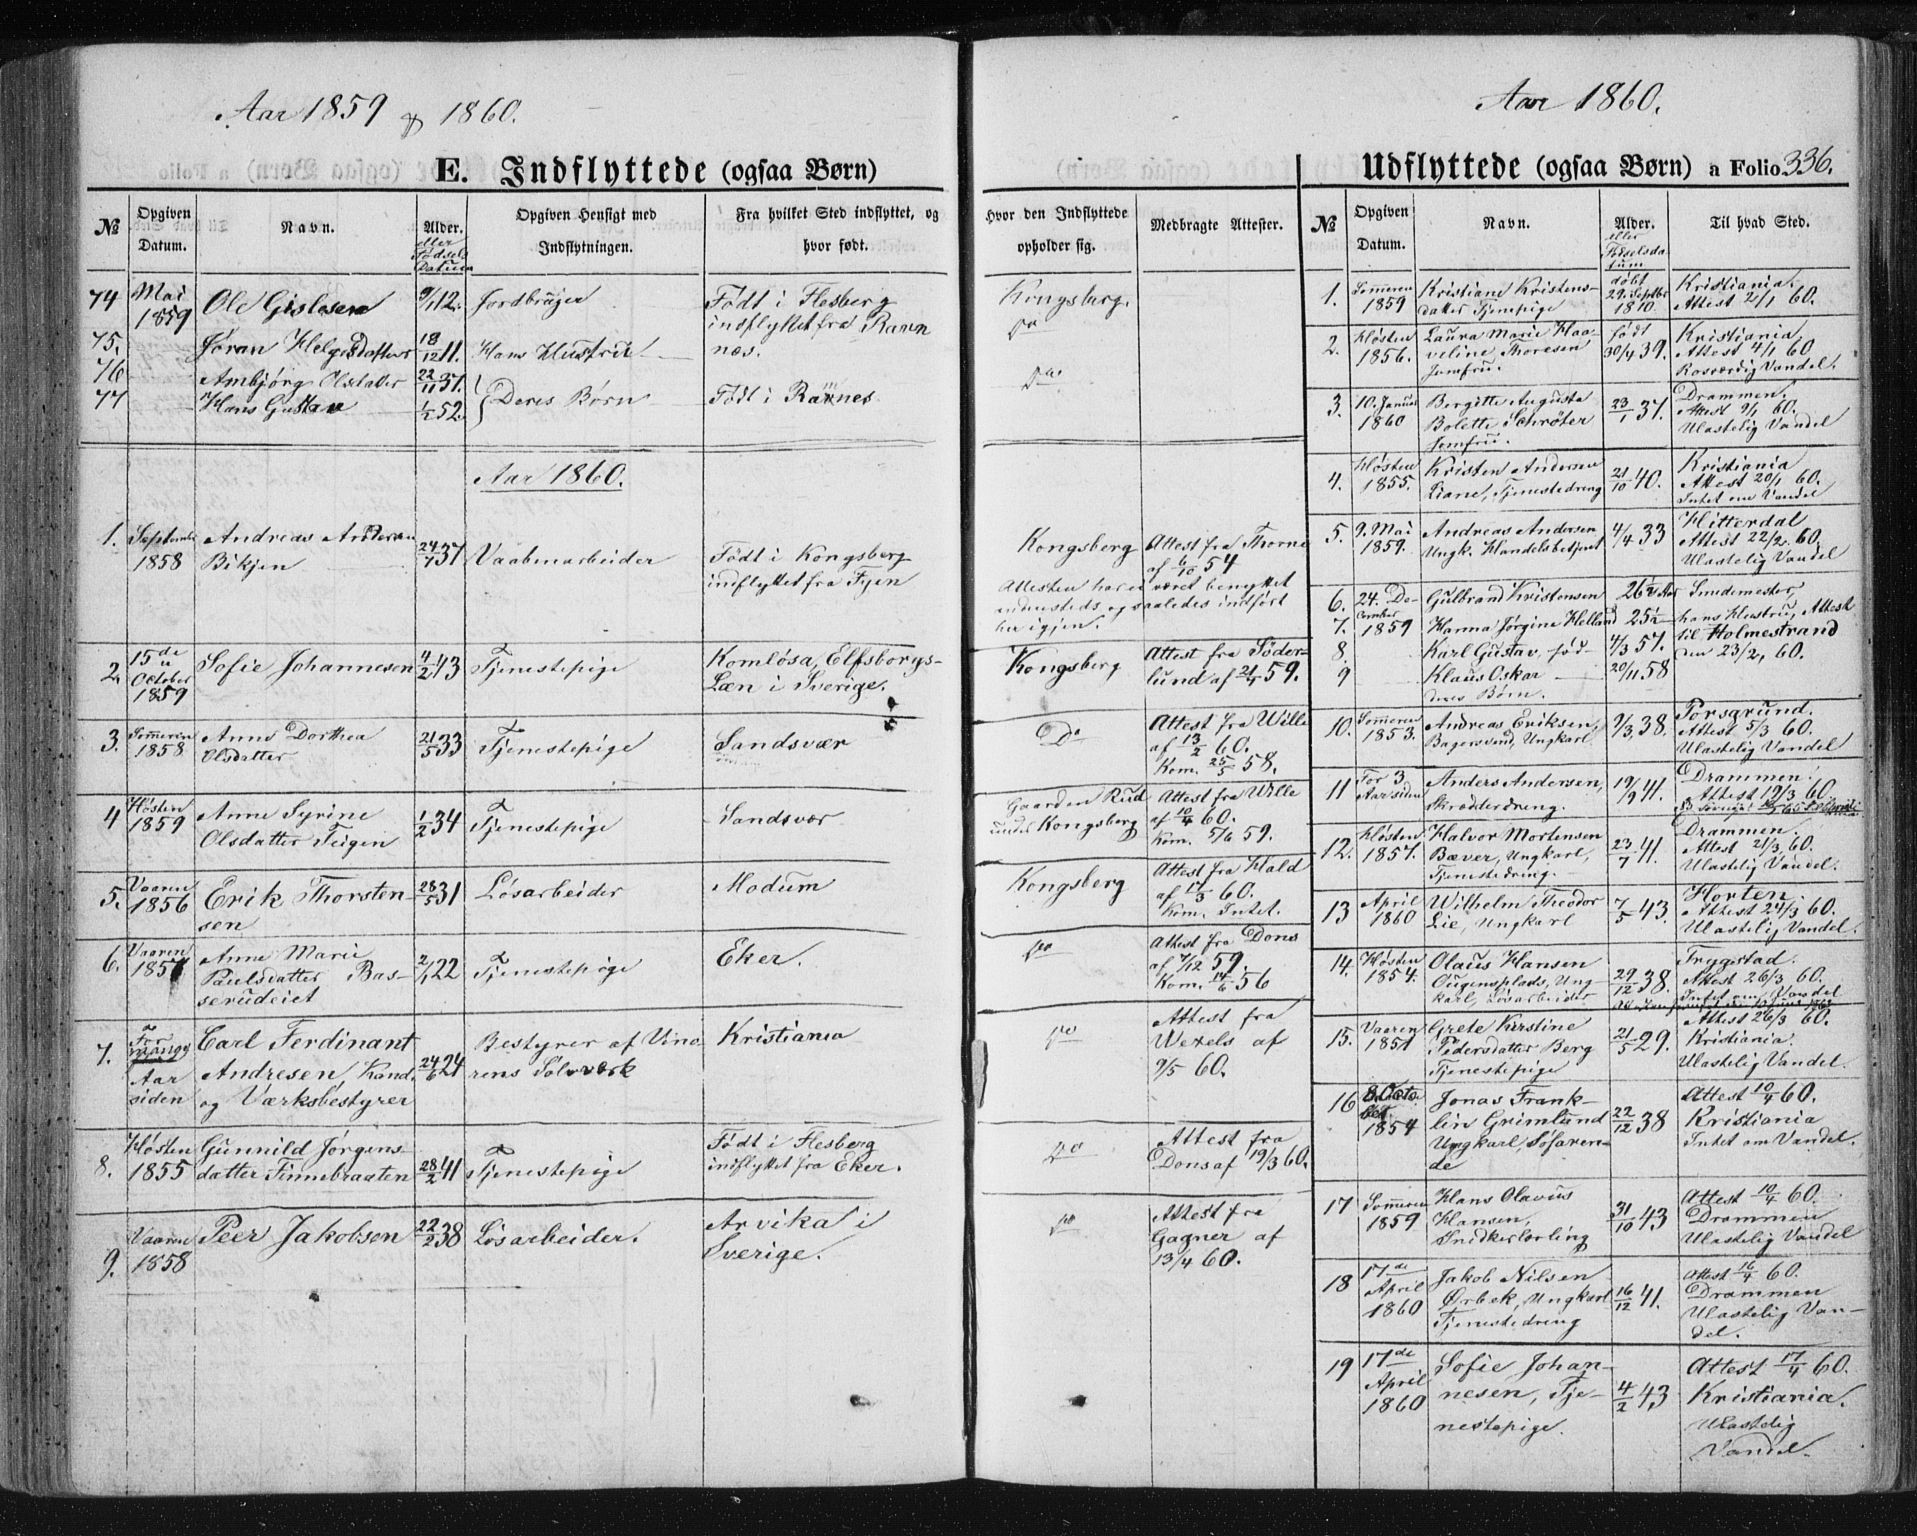 Aar 1859 & 1860.
E. Indflyttede (ogsaa Børn)
№
Opgiven Datum.
Navn.
Alder. eller Fødsels Datum
Opgiven Hensigt med Indflytningen.
Fra hvilket Sted indflyttet, og hvor født.
Hvor den Indflyttede opholder sig.
Medbragte Attester.
74 Mai 1859 Ole Gislesen 9/1 12. Jordbruger Født i Flesberg indflyttet fra Ravnnæs. Kongsberg.
75. Jøran Helgesdatter 18/12 11. Hans Hustru Do
76 Ambjørg Olsdatter 22/11 37. Deres Børn Født i Ravnnes Do
77 Hans Gustav 1/2 52.
Aar 1860.
1. September 1858 Andreas Andersen Bikjen 24/7 37 Vaabenarbeider Født i Kongsberg indflyttet fra Fyen Kongsberg Attest fra Thorne af 6/10 54
Attesten har ei været benyttet
andensteds og saaledes indført
her igjen.
2. 15de October 1859 Sofie Johannesen 4/2 43 Tjenestepige Komlösa, Elfsborgs-Læn i Sverige. Kongsberg Attest fra Söderlund af 21/4 59.
3. Someren 1858 Anne Dorthea Olsdatter 21/5 33 Tjenestepige Sandsvær Do Attest fra Wille af 13/2 60. Kom. 25/5 58.
4 Høsten 1859 Anne Syrine Olsdatter Teigen 1/2 34 Tjenestepige Sandsvær Gaarden Rud under Kongsberg Attest fra Wille af 10/4 60. Kom. 5/6 59.
5. Vaaren 1856 Erik Thorstensen 28/5 31 Løsarbeider Modum Kongsberg Attest fra Hald af 17/3 60. Kom. Intet.
6. Vaaren 1857 Anne Marie Paulsdatter Basserudeiet 2/1 22 Tjenestepige Eker. Do Attest fra Dons af 7/12 59. Kom. 14/6 56
7. For mange Aar siden Carl Ferdinant Andresen Kand. og Værksbestyrer 24/6 24 Bestyrer af Vinorens Sølvværk Kristiania Do Attest fra Wexels af 9/5 60.
8. Høsten 1855 Gunnild Jørgensdatter Finnebraaten 28/2 41 Tjenestepige Født i Flesberg indflyttet fra Eker. Do Attest fra Dons af 19/3 60.
9. Vaaren 1858 Peer Jakobsen 22/2 38 Løsarbeider. Arvika i Sverige. Do Attest fra Gagner af 13/4 60.
Aar 1860.
Udflyttede (ogsaa Børn) a Folio 336.
№
Opgiven Datum.
Navn.
Alder. eller Fødselsdatum
Til hvad Sted.
1. Someren 1859 Kristiane Kristensdatter Tjenepige døbt 29. Septbr 1810. Kristiania. Attest 2/1 60.
2. Høsten 1856. Laura Marie Haaveline Thoresen Jomfru. født 30/4 39. Kristiania Attest 4/1 60 Rosværdig Vandel.
3. 10. Januar 1860 Bergitte Augusta Bolette Schrøter Jomfru. 23/1 37. Drammen. Attest 9/1 60. Ulastelig Vandel
4. Høsten 1855. Kristen Andersen Liane, Tjenestedreng 21/10 40. Kristiania Attest 20/1 60. Intet om Vandel
5. 9. Mai 1859. Andreas Andersen Ungk. Handelsbetjent 4/4 33 Hitterdal Attest 22/2 60. Ulastelig Vandel
6. 24. December 1859 Gulbrand Kristensen 26 Aar Smedemester,
7. Hanna Jørgine Helland 25 1/2 hans Hustru, Attest
8. Karl Gustav, fød 4/3 57. til Holmestrand
9 Klaus Oskar deres Børn. 20/11 58 den 23/2, 60.
10. Someren 1853. Andreas Eriksen, Bagersvend, Ungkarl 9/3 38. Porsgrund. Attest 5/3 60. Ulastelig Vandel
11 For 3 Aar siden Anders Andersen, Skrædderdreng. 19/9 41. Drammen. Attest 19/3 60.
12. Høsten 1857. Halvor Mortensen Bæver, Ungkarl, Tjenestedreng. 23/7 41. Drammen. Attest 21/3 60. Ulastelig Vandel.
13 April 1860 Wilhelm Theodor Lie, Ungkarl 7/5 43. Horten. Attest 24/3 60. Ulastelig Vandel.
14. Høsten 1854. Olaus Hansen Ougensplads, Ungkarl, Løsarbeider 29/12 38. Trygstad. Attest 26/3 60. Intet om Vandel
15. Vaaren 1857 Grete Kirstine Pedersdatter Berg Tjenestepige 21/5 29. Attest 26/3 60. Kristiania. Ulastelig Vandel.
16 8. October 1854 Jonas Franklin Grimlund Ungkarl, Søfarende 22/12 38 Attest 10/4 60. Kristiania Intet om Vandel.
17 Someren 1859 Hans Olavus Hansen, Snedkerlærling 31/10 43 Attest 10/4 60. Drammen Ulastelig Vandel
18 17de April 1860 Jakob Nilsen Ørbek, Ungkarl Tjenestedreng 16/12 41. Attest 16/4 60. Drammen Ulastelig Vandel.
19 17de April 1860 Sofie Johannesen, Tjenestepige. 4/2 43 Attest 17/4 60. Kristiania. Ulastelig Vandel.